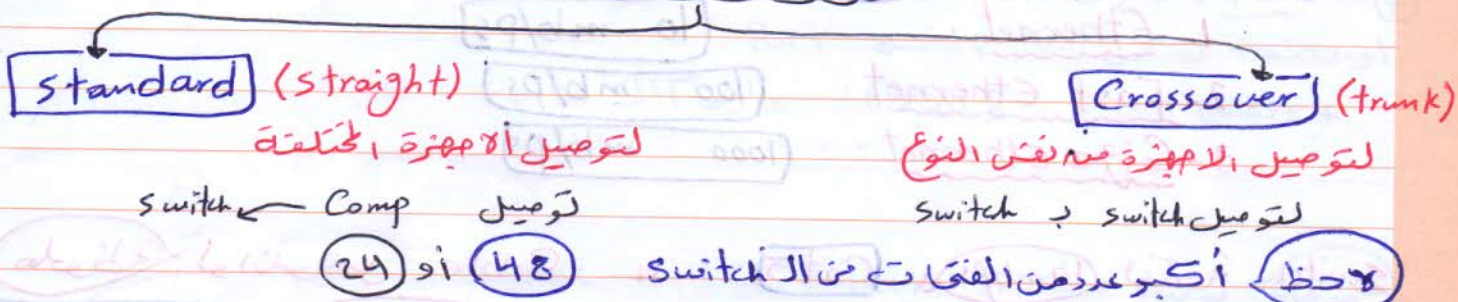 Standard (straight) Crossover (trunk)
لتوصيل الاجهزة المختلفة لتوصيل الاجهزة من نفس النوع
توصيل Comp ← switch لتوصيل switch بـ switch
لاحظ أكبر عدد من الفتحات من الـ switch 48 أو 24